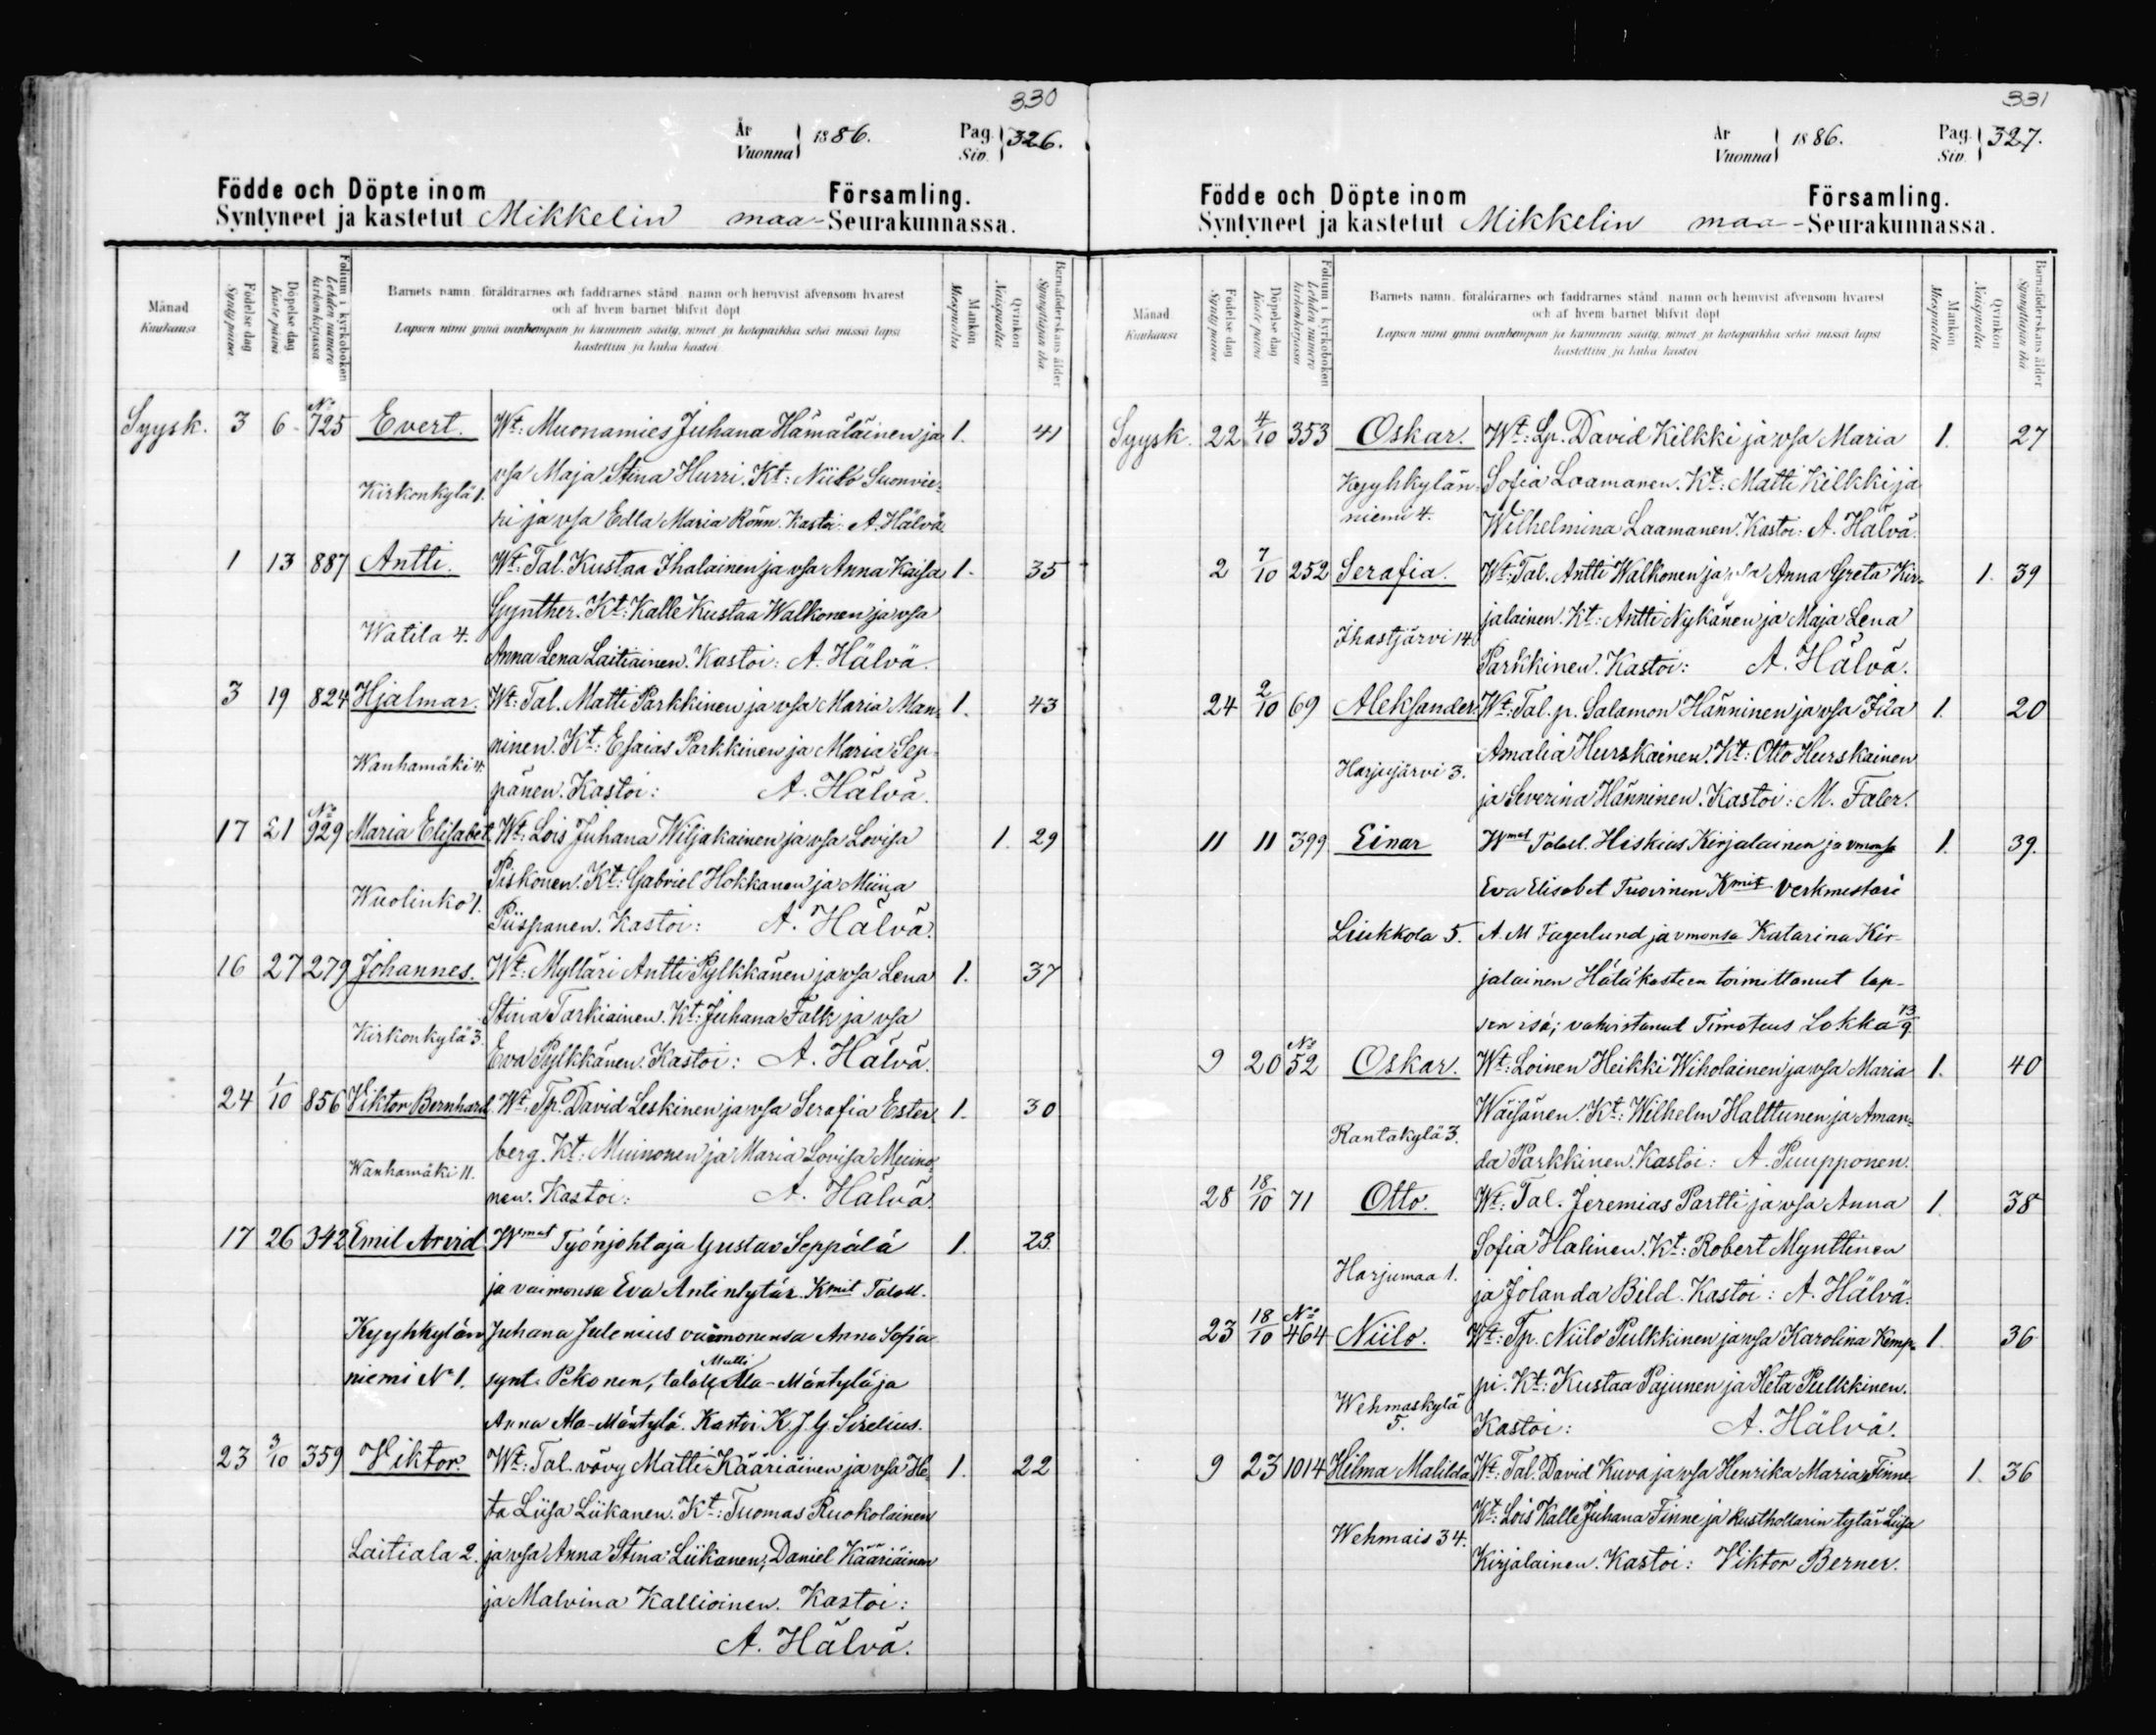 330
År
Vuonna
1886.
Pag.
Siv.
326.
Födde och Döpte inom
Församling.
Syntyneet ja kastetut Mikkelin maa-Seurakunnassa.
Månad
Kuukausi
Födelse dag
Synty päivä.
Döpelse dag
Kaste päivä
Folium i kyrkoboken
Lehden numero
kirkonkirjassa
Barnets namn, föräldrarnes och faddrarnes stånd, namn och hemvist äfvensom hvarest
och af hvem barnet blifvit döpt
Lapsen nimi ynnä vanhempain ja kummein sääty, nimet ja kotopaikka sekä missä lapsi
kastettiin ja kuka kastoi
Mankön
Miespuolia
Qvinkön
Naispuolia
Barnaföderskans ålder
Synnyttäjän ikä
Syysk. 3 6 No 725 Evert. Wt: Muonamies Juhana Hämäläinen ja 1. 41
vsa Maja Stina Hurri. Kt: Niilo Suonvie-
Kirkonkylä 1.
ri ja vsa Edla Maria Rönn. Kastoi: A. Hälvä.
1 13 887 Antti. Wt: Tal. Kustaa Ihalainen ja vsa Anna Kaisa 1. 35
Gynther. Kt: Kalle Kustaa Walkonen ja vsa
Watila 4.
Anna Lena Laitiainen. Kastoi: A. Hälvä.
3 19 824 Hjalmar. Wt: Tal. Matti Parkkinen ja vsa Maria Man- 1. 43
ninen. Kt: Esaias Parkkinen ja Maria Sep-
Wanhamäki 4.
pänen. Kastoi: A. Hälvä.
17 21 No 929 Maria Elisabet. Wt: Lois Juhana Wiljakainen ja vsa Lovisa 1. 29
Piskonen. Kt: Gabriel Hokkanen ja Miina
Wuolinko 1.
Piispanen. Kastoi: A. Hälvä.
16 27 279 Johannes. Wt: Mylläri Antti Pylkkänen ja vsa Lena 1. 37
Stina Tarkiainen. Kt: Juhana Falk ja vsa
Kirkonkylä 3.
Eva Pylkkänen. Kastoi: A. Hälvä.
24 1/10 856 Viktor Bernhard. Wt: Tp. David Leskinen ja vsa Serafia Ester- 1. 30
berg. Kt: Muinonen ja Maria Lovisa Muino-
Wanhamäki 11.
nen. Kastoi: A. Hälvä.
17 26 342 Emil Arvid. Wmat Työnjohtaja Gustav Seppälä 1. 23.
ja vaimonsa Eva Antintytär. Kmit Taloll.
Kyyhkylän Juhana Julenius vaimonensa Anna Sofia
niemi No 1. synt. Pekonen, taloll. Matti Ala-Mäntylä ja
Anna Ala-Mäntylä. Kastoi K. J. G. Sirelius.
23 3/10 359 Viktor. Wt: Tal. vävy Matti Kääriäinen ja vsa He- 1. 22
ta Liisa Liikanen. Kt: Tuomas Ruokolainen
Laitiala 2. ja vsa Anna Stina Liikanen, Daniel Kääriäinen
ja Malvina Kallioinen. Kastoi:
A. Hälvä.
331
År
Vuonna
1886.
Pag.
Siv.
327.
Födde och Döpte inom
Församling.
Syntyneet ja kastetut Mikkelin maa-Seurakunnassa.
Månad
Kuukausi
Födelse dag
Synty päivä
Döpelse dag
Kaste päivä
Folium i kyrkoboken
Lehden numero
kirkonkirjassa
Barnets namn, föräldrarnes och faddrarnes stånd, namn och hemvist äfvensom hvarest
och af hvem barnet blifvit döpt
Lapsen nimi ynnä vanhempain ja kummein sääty, nimet ja kotopaikka sekä missä lapsi
kastettiin ja kuka kastoi
Mankön
Miespuolia
Qvinkön
Naispuolia
Barnaföderskans ålder
Synnyttäjän ikä
Syysk. 22 4/10 353 Oskar. Wt: Lp. David Kilkki ja vsa Maria 1. 27
Kyyhkylän- Sofia Laamanen. Kt: Matti Kilkki ja
niemi 4.
Wilhelmina Laamanen. Kastoi: A. Hälvä.
2 7/10 252 Serafia. Wt: Tal. Antti Walkonen ja vsa Anna Greta Kir- 1. 39
jalainen. Kt: Antti Nykänen ja Maja Lena
Ihastjärvi 14.
Parkkinen. Kastoi: A. Hälvä.
24 2/10 69 Aleksander. Wt: Tal. p. Salamon Hänninen ja vsa Fiia 1. 20
Amalia Hurskainen. Kt: Otto Hurskainen
Harjujärvi 3.
ja Severina Hänninen. Kastoi: M. Faler.
11 11 399 Einar Wmat Taloll. Hiskias Kirjalainen ja vmonsa 1. 39.
Eva Elisabet Tuovinen Kmit Verkmestari
Liukkola 5. A. M Fagerlund ja vmonsa Katarina Kir-
jalainen Hätäkasteen toimittanut lap-
sen isä; vahvistanut Timoteus Lokka 13/9.
9 20 No 52 Oskar. Wt: Loinen Heikki Wiholainen ja vsa Maria 1. 40
Wäisänen. Kt: Wilhelm Halttunen ja Aman-
Rantakylä 3.
da Parkkinen. Kastoi: A. Puupponen.
28 18/10 71 Otto. Wt: Tal. Jeremias Partti ja vsa Anna 1. 38
Sofia Halinen. Kt: Robert Mynttinen
Harjumaa 1.
ja Jolanda Bild. Kastoi: A. Hälvä.
23 18/10 No 464 Niilo. Wt: Tp. Niilo Pulkkinen ja vsa Karolina Kemp- 1. 36
pi. Kt: Kustaa Pajunen ja Heta Pulkkinen.
Wehmaskylä
5.
Kastoi: A. Hälvä.
9 23 1014 Hilma Matilda. Wt: Tal. David Kuva ja vsa Henrika Maria Finne. 1. 36
Kt: Lois Kalle Juhana Finne ja Rusthollarin tytär Liisa
Wehmais 34.
Kirjalainen. Kastoi: Viktor Berner.